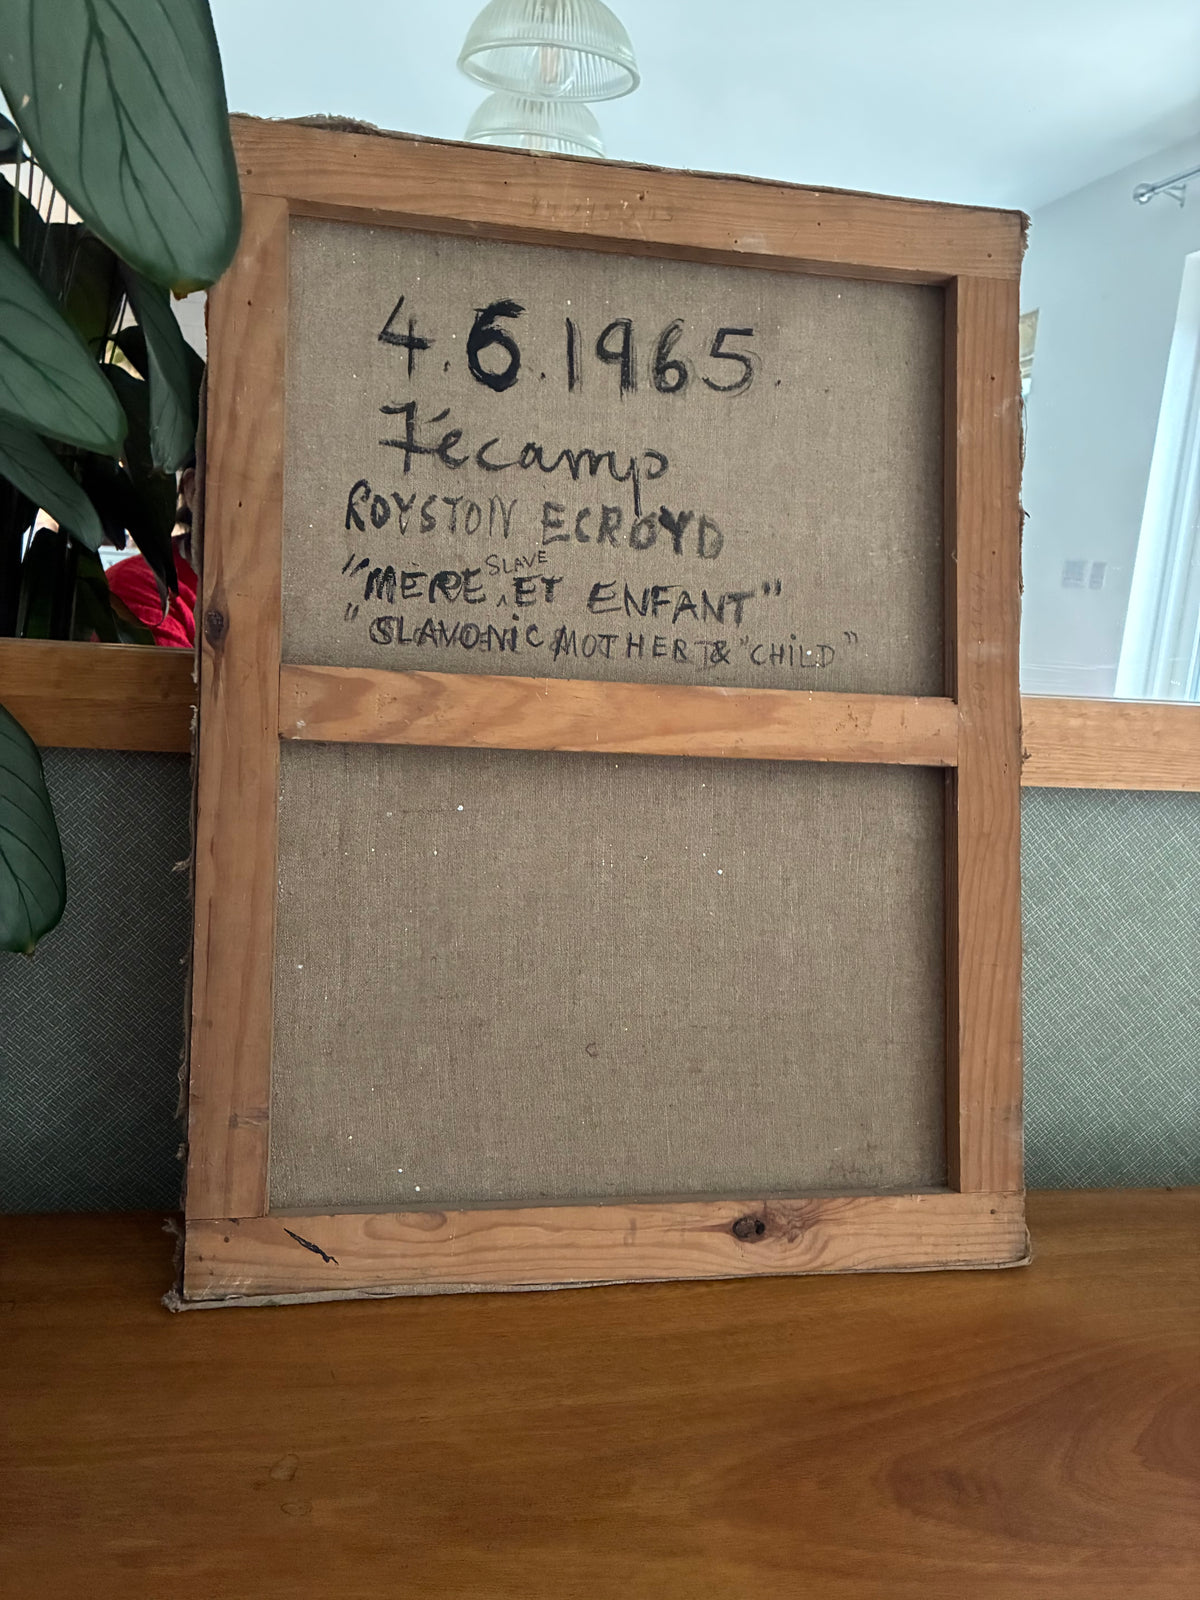 4.6.1965.
Fécamp
ROYSTON ECROYD
SLAVE
"MÈRE ^ ET ENFANT"
"SLAVONIC MOTHER & "CHILD"